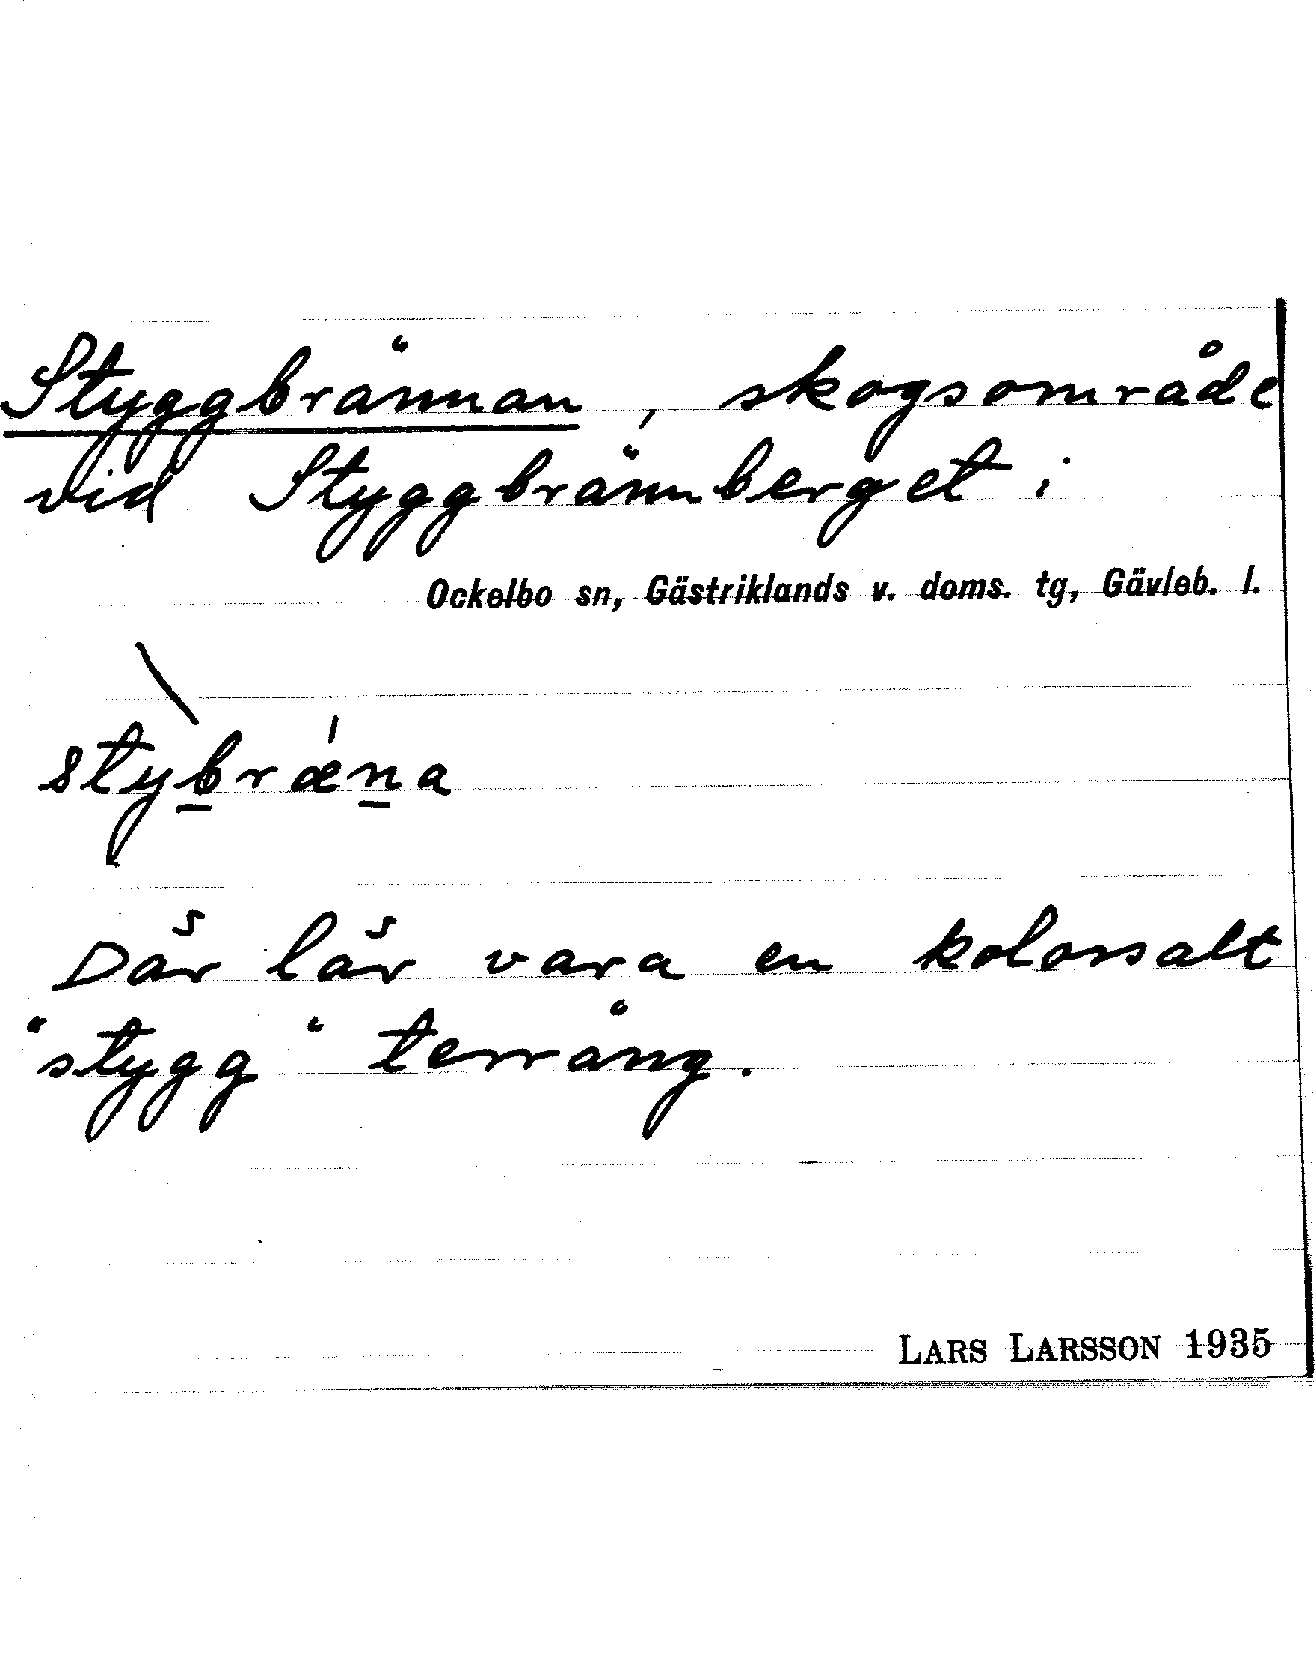 Styggbrännan, skogsområde
vid Styggbrännberget i
Ockelbo sn, Gästriklands v. doms. tg, Gävleb. l.
stỳb̲rǽn̲a
Där lär vara en kolossalt
"stygg" terräng.
LARS LARSSON 1935